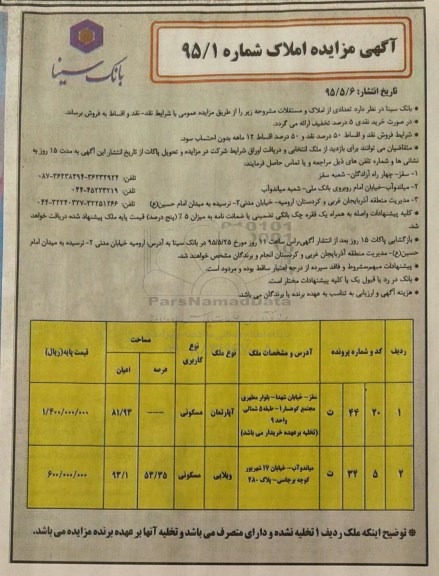 آگهی مزایده املاک شماره ۹۵/۱
بانک سینا
تاریخ انتشار: ۹۵/۵/۶
* بانک سینا در نظر دارد تعدادی از املاک و مستغلات مشروحه زیر را از طریق مزایده عمومی با شرایط نقد- نقد و اقساط به فروش برساند.
* در صورت خرید نقدی ۵ درصد تخفیف ارائه می گردد.
* شرایط فروش نقد و اقساط ۵۰ درصد نقد و ۵۰ درصد اقساط ۱۲ ماهه بدون احتساب سود.
* متقاضیان می توانند برای بازدید از ملک انتخابی و دریافت اوراق شرایط شرکت در مزایده و تحویل پاکات از تاریخ انتشار این آگهی به مدت ۱۵ روز به
نشانی ها و شماره تلفن های ذیل مراجعه و یا تماس حاصل فرمایند.
۱- سقز- چهار راه آزادگان- شعبه سقز تلفن: ۳۶۲۳۲۹۲۴-۳۶۲۳۸۴۹۴-۰۸۷
۲- میاندوآب- خیابان امام روبروی بانک ملی- شعبه میاندوآب تلفن: ۴۵۲۳۲۱۹-۰۴۴
۳- مدیریت منطقه آذربایجان غربی و کردستان: ارومیه- خیابان مدنی ۲- نرسیده به میدان امام حسین(ع)
* کلیه پیشنهادات واصله به همراه یک فقره چک بانکی تضمینی یا ضمانت نامه به میزان ۵٪ (پنج درصد) قیمت پایه ملک پیشنهاد شده دریافت خواهد
شد.
* بازگشایی پاکات ۱۵ روز بعد از انتشار آگهی راس ساعت ۱۱ روز مورخ ۹۵/۵/۲۵ در بانک سینا به آدرس: ارومیه خیابان مدنی ۲- نرسیده به میدان امام
حسین(ع)- مدیریت منطقه آذربایجان غربی و کردستان انجام و برندگان مشخص خواهند شد.
* پیشنهادات مبهم، مشروط و فاقد سپرده از درجه اعتبار ساقط بوده و مردود است.
* بانک در رد یا قبول یک یا کلیه پیشنهادات مختار است.
* هزینه آگهی و ارزیابی به تناسب به عهده برنده یا برندگان می باشد.
ParsNamadData
ردیف کد و شماره پرونده آدرس و مشخصات ملک نوع ملک نوع کاربری مساحت عرصه اعیان قیمت پایه(ریال)
۱ ۲۰ ۴۴ ت سقز- خیابان شهدا- بلوار مطهری
مجتمع کوهسار۱- طبقه۵ شمالی
واحد ۹
(تخلیه برعهده خریدار می باشد) آپارتمان مسکونی —— ۸۱/۹۳ ۱/۴۰۰/۰۰۰/۰۰۰
۲ ۵ ۳۴ ت میاندوآب- خیابان ۱۷ شهریور
کوچه برجاسی- پلاک ۲۸۰ ویلایی مسکونی ۵۳/۳۵ ۹۳/۱ ۶۰۰/۰۰۰/۰۰۰
* توضیح اینکه ملک ردیف ۱ تخلیه نشده و دارای متصرف می باشد و تخلیه آنها بر عهده برنده مزایده می باشد.